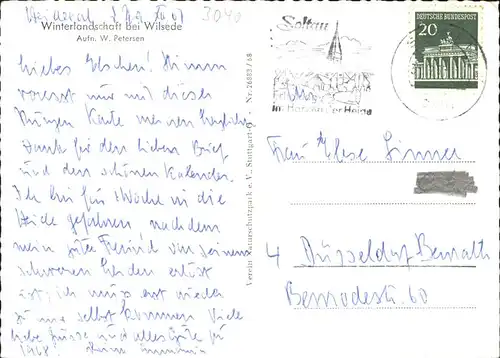 3040
Winterlandschaft bei Wilsede
Aufn. W. Petersen
Liebes Elschen! Nimm
vorerst nur mit dieser
kurzen Karte meinen herzlichen
Dank für den lieben Brief
und den schönen Kalender.
Ich bin für 1 Woche in die
Heide gefahren, nachdem
mein guter Freund von seinem
schweren Leiden erlöst
ist, ich muss erst wieder
zu mir selbst kommen. Viele
liebe Grüsse und alles Gute für
1968!
Verein Naturschutzpark e. V., Stuttgart-O Nr. 26883/68
Soltau
im Herzen der Heide
DEUTSCHE BUNDESPOST
20
Frau Else Linner
4 Düsseldorf Benrath
Benrodestr. 60